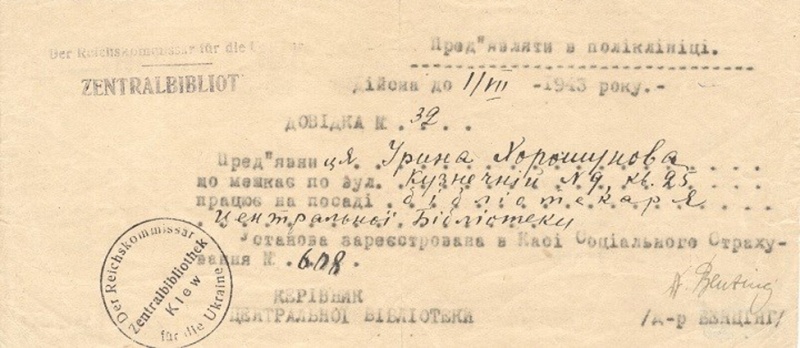 Der Reichskommissar für die
ZENTRALBIBLIOT
Пред"являти в поліклініці.
дійсна до 1/VII -1943 року.-
ДОВІДКА № . 32 . .
Пред"явниця. Ірина Хорошунова
що мешкає по вул. Кузнечній № 9, кв. 25
працює на посаді бібліотекаря
Центральної Бібліотеки
Установа зареєстрована в Касі Соціального Страху-
вання № . 608 .
КЕРІВНИК
ЦЕНТРАЛЬНОЇ БІБЛІОТЕКИ /д-р БЕНЦІНГ/
Benzing
Der Reichskommissar für die Ukraine
Zentralbibliothek
Kiew